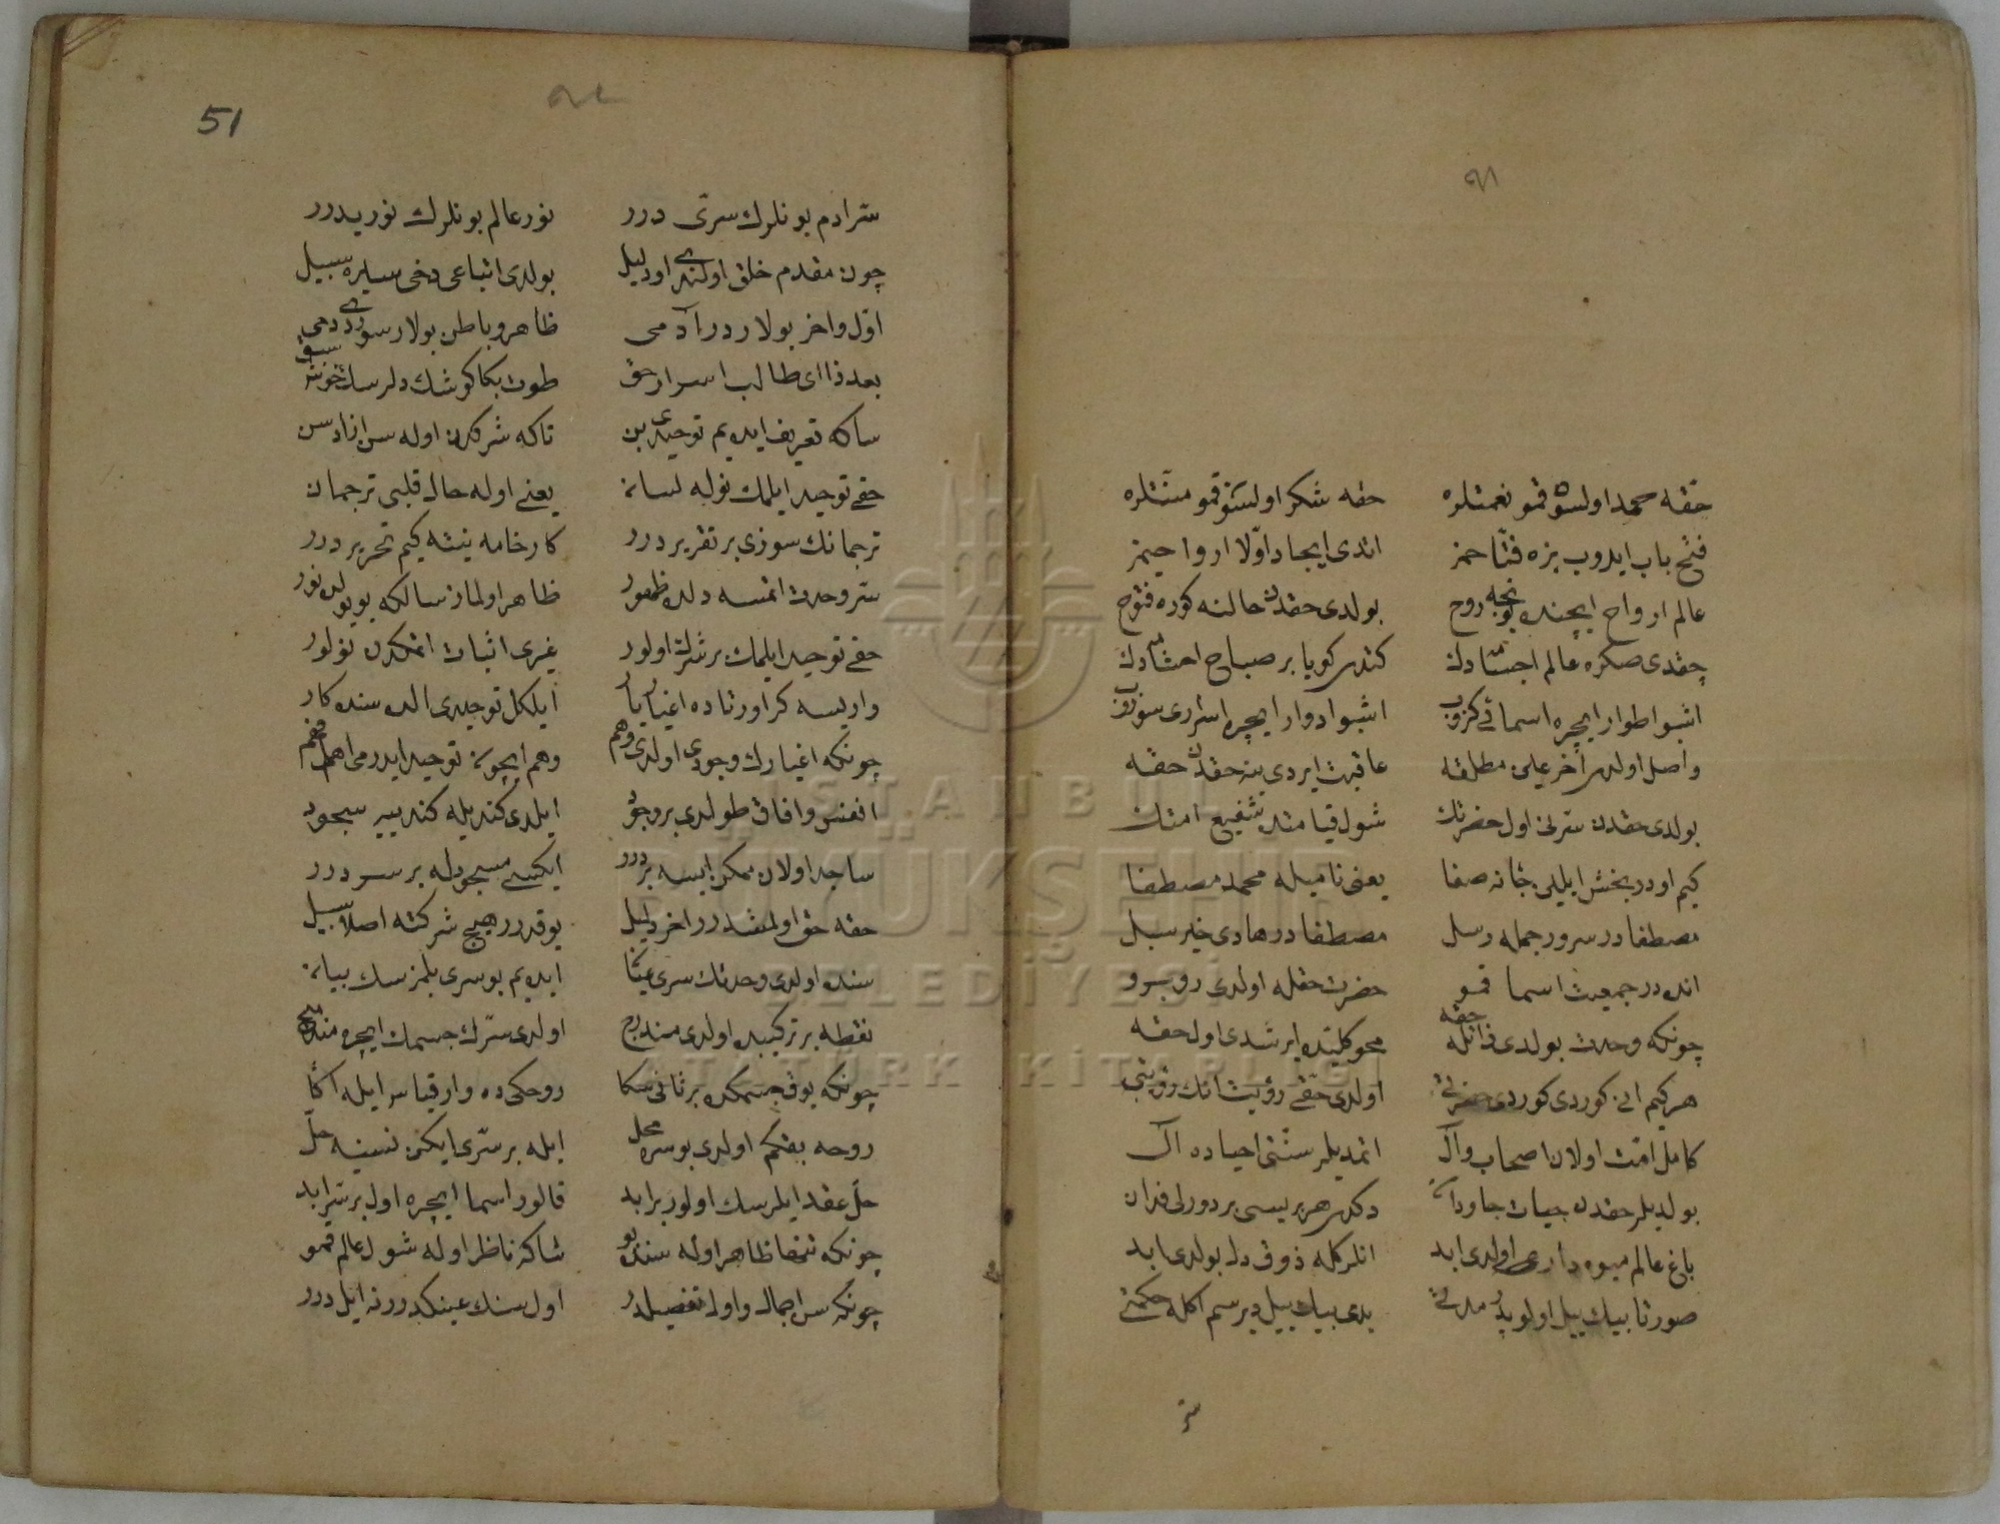 ٩١
حقّه حمد اولسون قمو نعمتلره حقه شكر اولسون قمو منتلره
فتح باب ايدوب بزه فتّاحمز اتدى ايجاد اوّلا ارواحيمز
عالم ارواح ايچنده بونجه روح بولدى حقدن حالنه كوره فتوح
چقدى صكره عالم اجسادن كندى كويا بر صباح
اشبو اطوار ايچره اسمائى كزوب اشبو ادوار ايچره اسرارى سوزوب
واصل اولدى آخر علم مطلقه عاقبت ايردى ينه حقدن حقه
بولدى حقدن سرّنى اول حضرتك شول قيامتده شفيع امتك
كيم اودر بخش ايلين جانه صفا يعنى ناميله محمد مصطفا
مصطفادر سرور جمله رسل مصطفادر هادى خير سبل
انده در جمعيت اسما قمو حضرت حقله اولدى روبرو
چونكه وحدت بولدى ذاتله حقه محو كليتده ايرشدى اول حقه
هر كيم انى كوردى كوردى اولدى حقى رؤيت انك رؤيتى
كامل امّت اولان اصحاب وآل اتمديلر سنّتى احياده آل
بولديلر حقدن حيات جاودان دكدى هر بريسى بر دورلى فدان
باغ عالم ميوه دارى اولدى ابد انلركله ذوق دل بولدى ابد
صورتا بيك ييل اولوبدر مدتى يدى بيك ييل ديرسم اكله حكمتى
سر
51
٩٢
سرّ ادم بونلرك سرّى درر نور عالم بونلرك نوريدرر
چون مقدم خلق اولندى اول دليل بولدى اتباعى دخى سيره سبيل
اوّل واخر بولاردر آدمى ظاهر وباطن بولار سوردى دمى
بعد ذا اى طالب اسرار حق طوت بكا كوشك دلرسك خوش سبق
ساكه تعريف ايده يم توحيدى بن تاكه شركدن اوله سن ازاد سن
حقى توحيد ايلمك نوله لسان يعنى اوله حال قلبى ترجمان
ترجمانك سوزى بر تقرير درر كار خامه نيته كيم تحرير درر
سرّ وحدت اتمسه دلده ظهور ظاهر اولماز سالكه بو يولده نور
حقى توحيد ايلمك بر شرك اولور غيرى اثبات اتمكدن نولور
واريسه كر اورتاده اغيار يار ايلكل توحيدى الده سنده كار
چونكه اغيارك وجودى اولدى وهم وهم ايچون توحيد ايدرمى اهل فهم
انفس وافاق طولدى بر وجود ايلدى كنديله كندييه سجود
ساجد اولان ممكن ايسه بر درر ايكسى مسجودله بر سر درر
حقه حق اولمشدرر اخر دليل يوقدرر هيچ شركته اصلا سبيل
سنده اولدى وحدتك سرى عيان ايده يم بو سرى بلمزسك بيان
نقطه بر تركيبده اولدى مندرج اولدى سرّك جسمك ايچره مندمج
چونكه يوق جسمكده بر ثانى سكا روحكى ده وار قياس ايله اكا
روحه بقكم اولدى بو سره محل ايله بر سرّى ايكن نسنه حلّ
حلّ عقد ايلرسك اولور بر ابد قالور اسما ايچره اول بر سر ابد
چونكه ظاهر اوله سنده بو شاكه ناظر اوله شول عالم قمو
چونكه سن اجمال واول تفصيلدر اول سنك عينكدورنه ايل درر